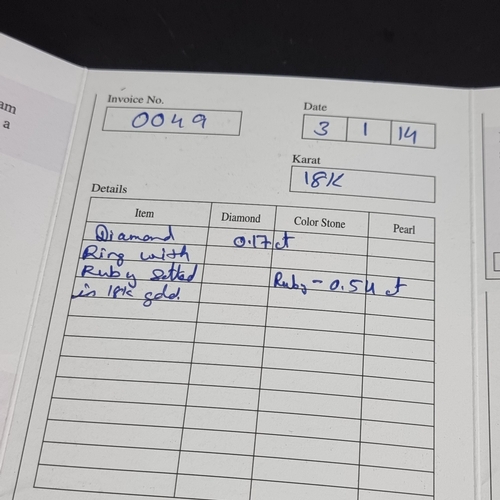 am
a
Invoice No.
0049
Date
3 1 14
Karat
18K
Details
Item Diamond Color Stone Pearl
Diamond 0.17 ct
Ring with
Ruby setted Ruby - 0.54 ct
in 18k gold.